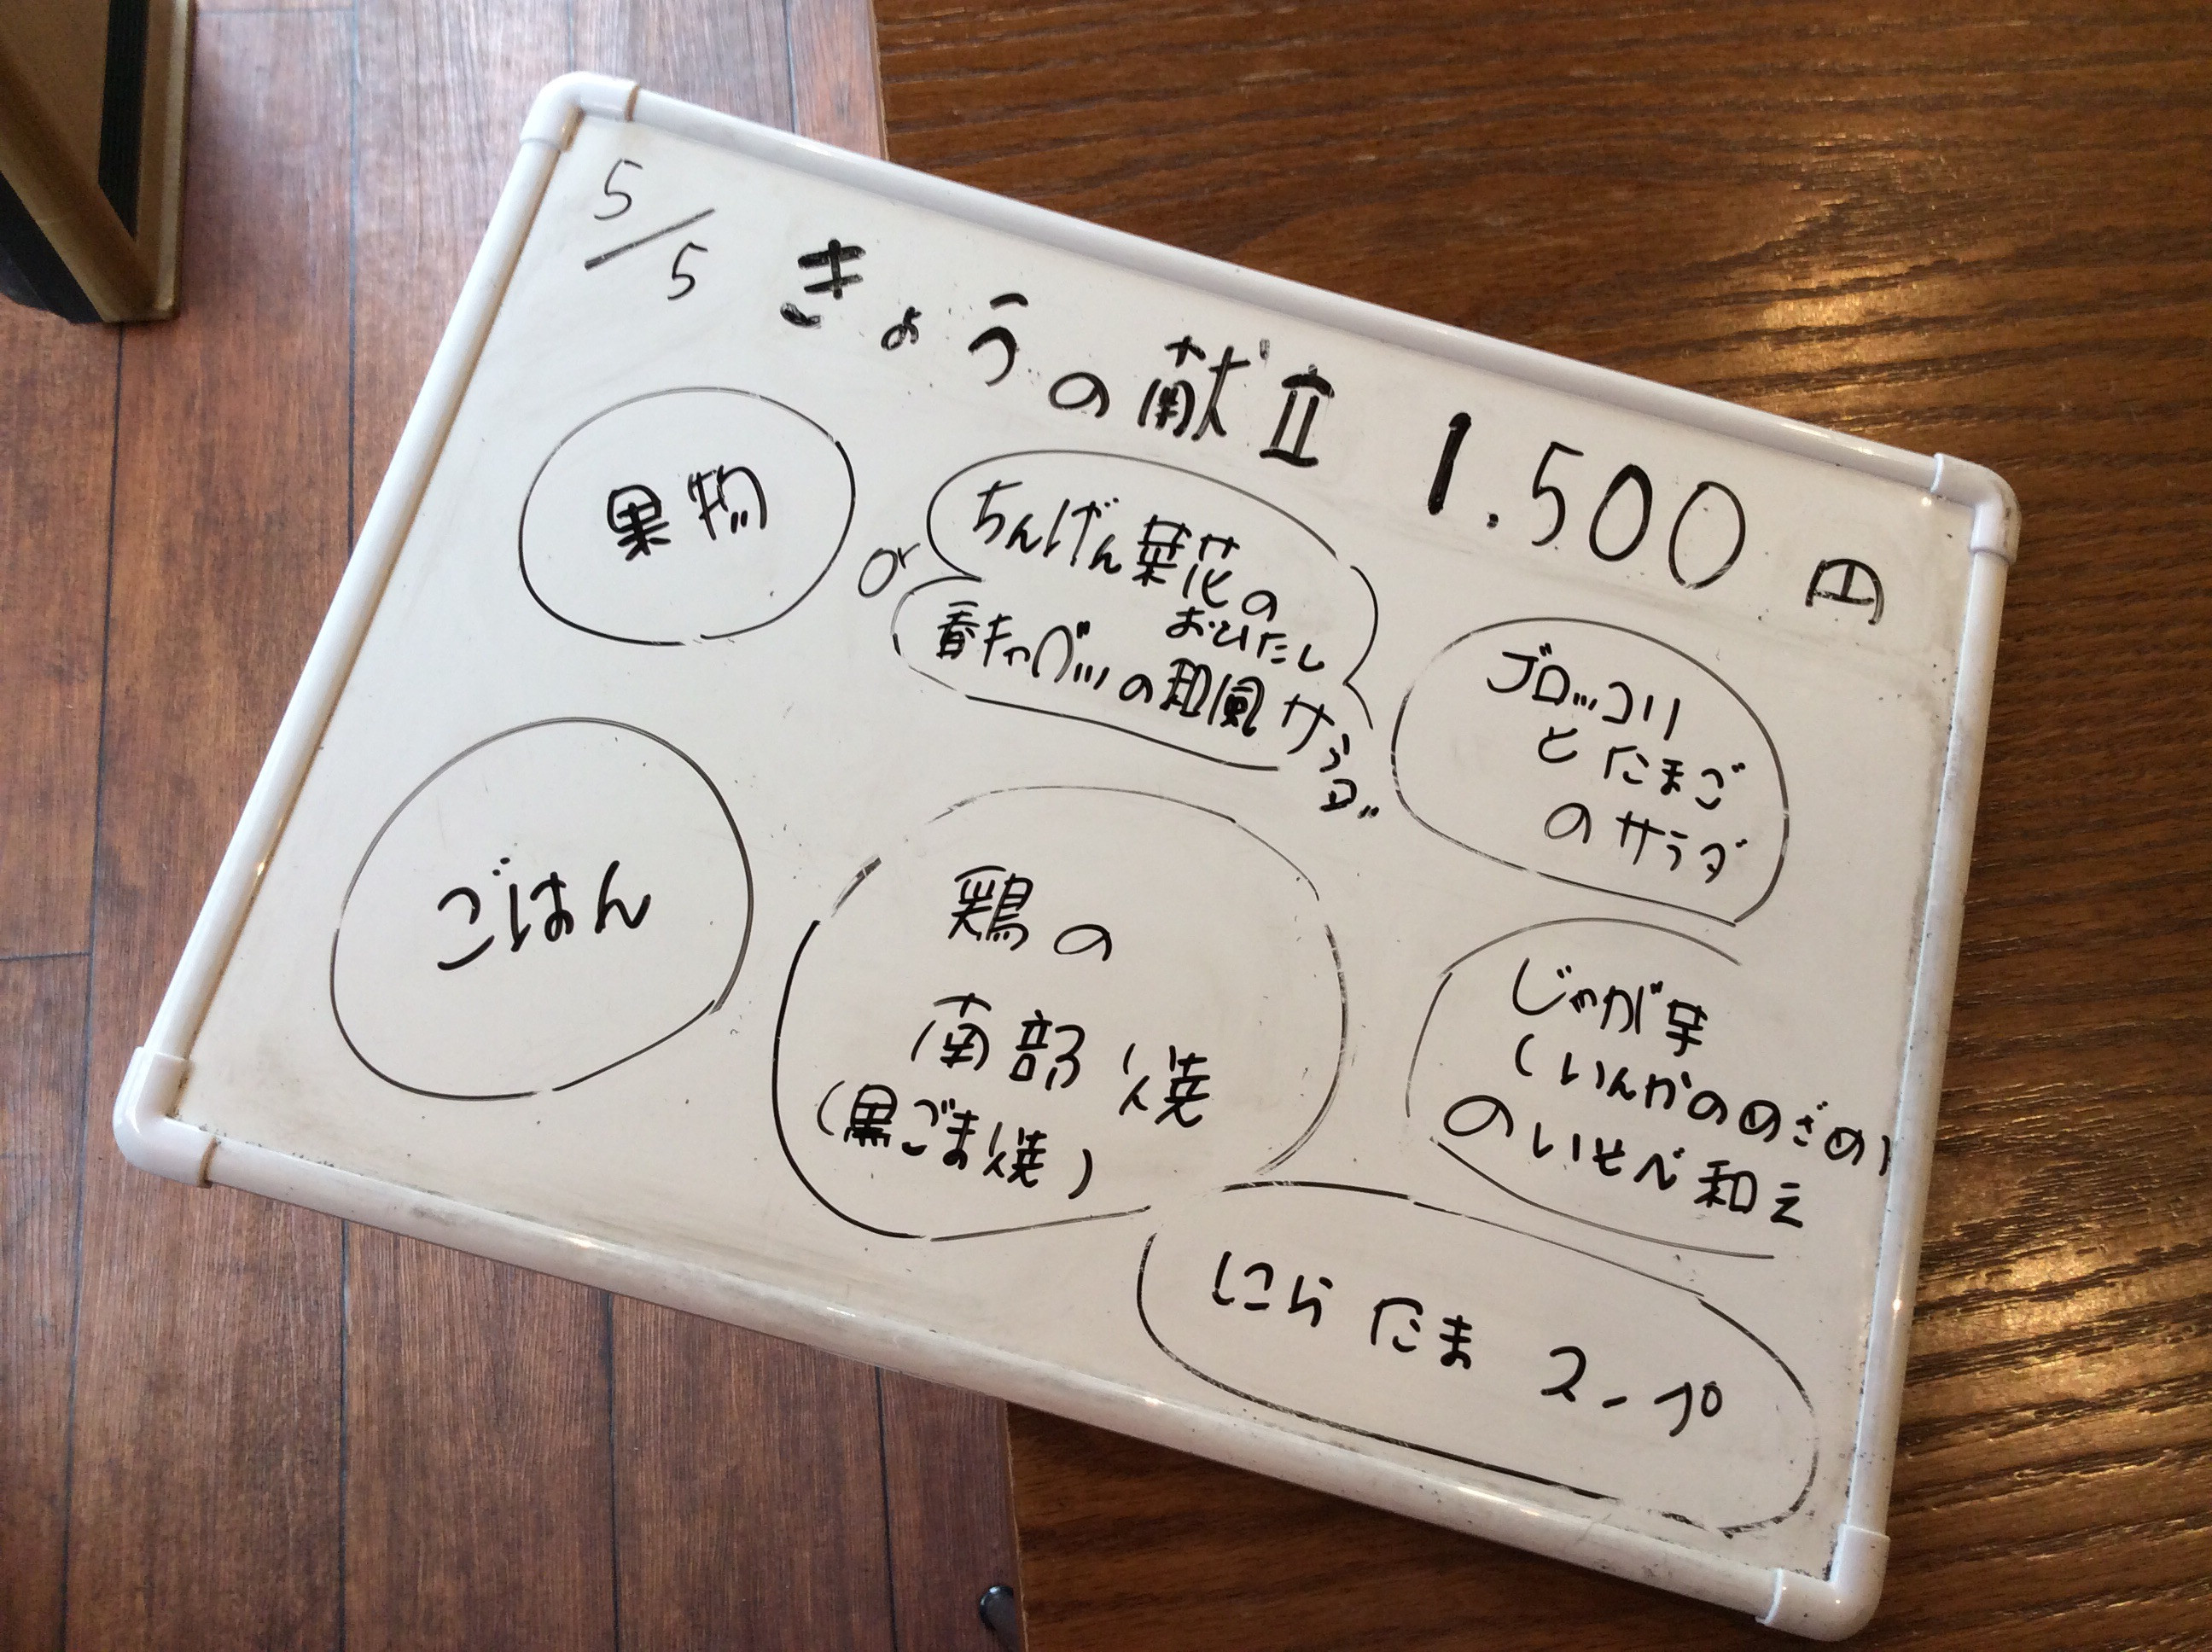 5/5
きょうの献立 1.500円
果物
or
ちんげん菜花の
おひたし
春キャベツの和風サラダ
ブロッコリ
とたまご
のサラダ
ごはん
鶏の
南部焼
(黒ごま焼)
じゃが芋
(いんかのめざめ)
のいそべ和え
にらたまスープ